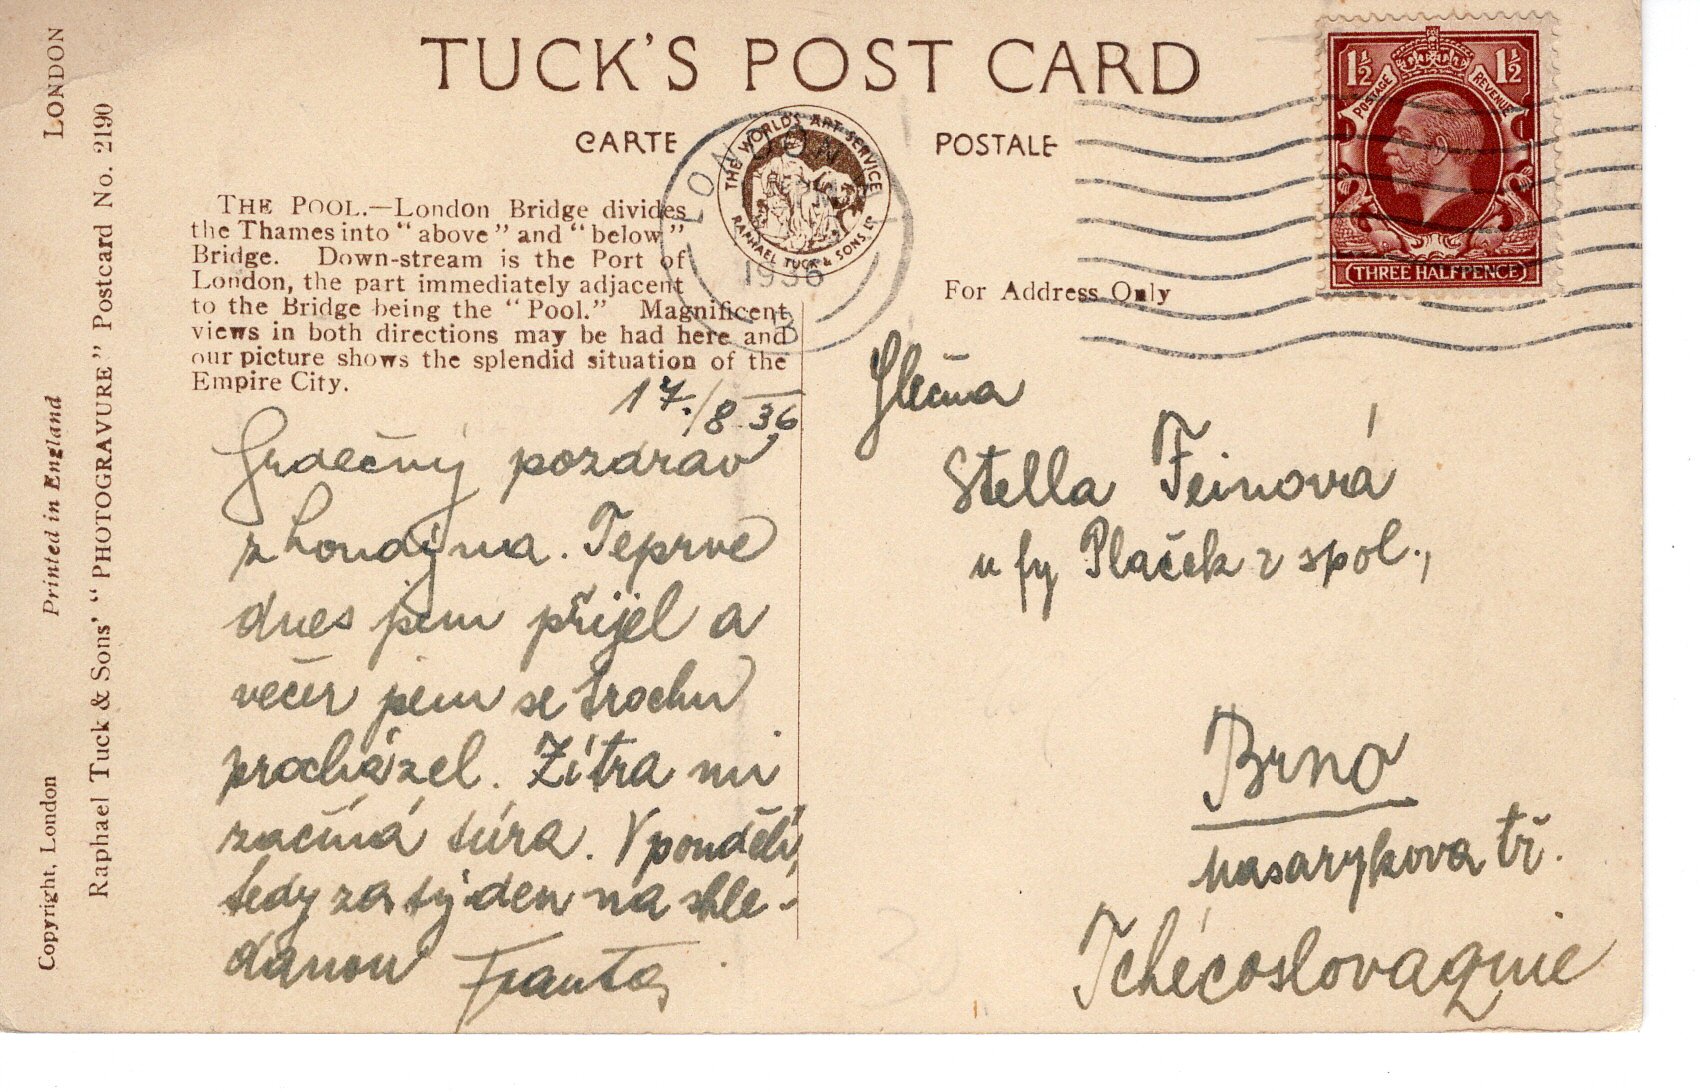 TUCK'S POST CARD
CARTE POSTALE
THE WORLD'S ART SERVICE
RAPHAEL TUCK & SONS LTD
LONDON
1936
POSTAGE REVENUE
1½ 1½
THREE HALFPENCE
THE POOL.—London Bridge divides
the Thames into "above" and "below"
Bridge. Down-stream is the Port of
London, the part immediately adjacent
to the Bridge being the "Pool." Magnificent
views in both directions may be had here and
our picture shows the splendid situation of the
Empire City.
For Address Only
17./8 36
Srdečný pozdrav
z Londýna. Teprve
dnes jsem přijel a
večer jsem se trochu
procházel. Zítra mi
začíná túra. V pondělí,
tedy za týden na shle-
danou Franta
Slečna
Stella Feinová
u fy Plaček & spol.,
Brno
Masarykova tř.
Tchécoslovaquie
Copyright, London Printed in England LONDON
Raphael Tuck & Sons' "PHOTOGRAVURE" Postcard No. 2190